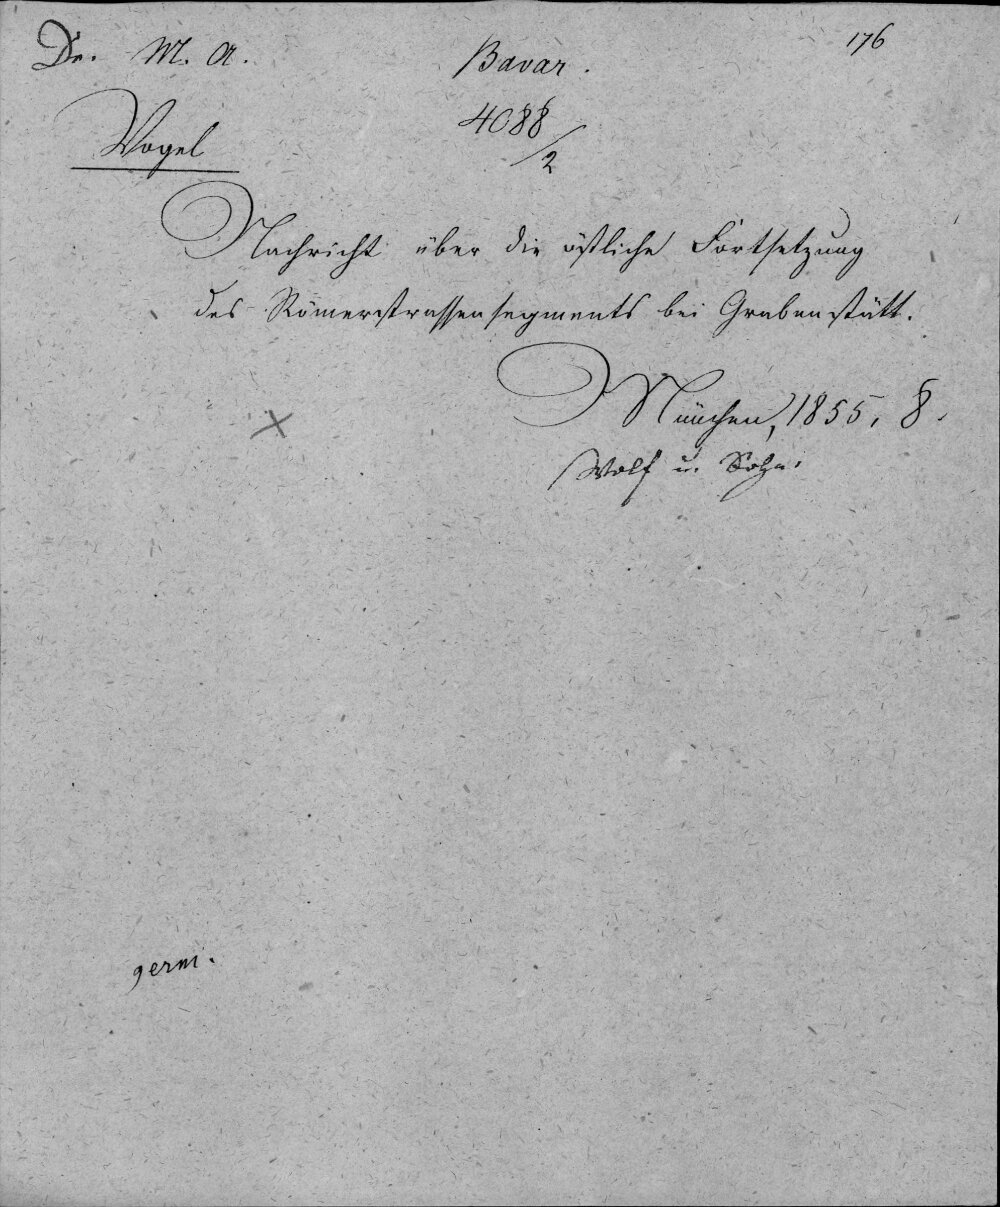 Dr. M. A. Bavar. 176
Vogel 4088/2
Nachricht über die östliche Fortsetzung
des Römerstrassensegments bei Grabenstätt.
München, 1855, 8.
Wolf u. Sohn.
germ.